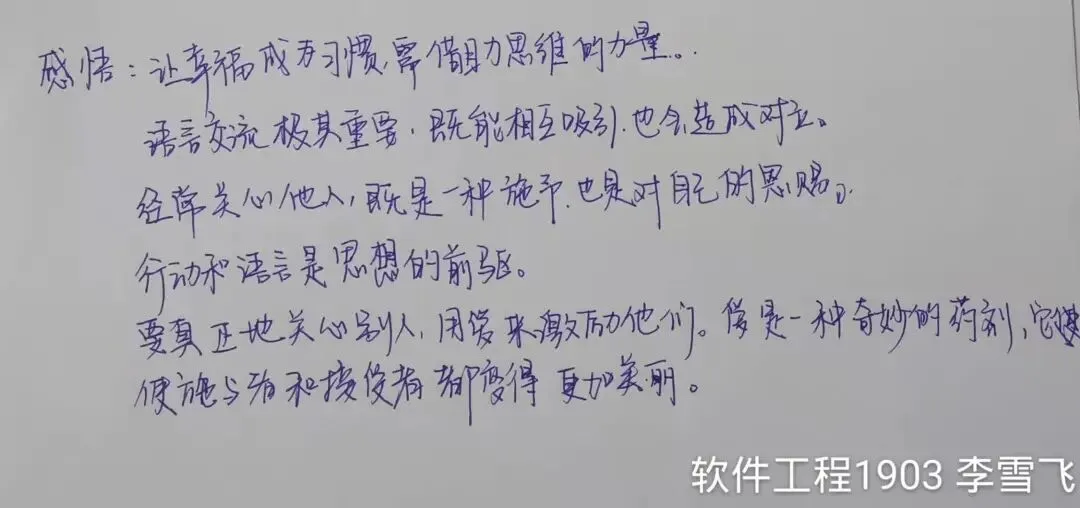 感悟：让幸福成为习惯，需借助力思维的力量。
语言交流极其重要，既能相互吸引，也会造成对立。
经常关心他人，既是一种施予，也是对自己的恩赐。
行动和语言是思想的前驱。
要真正地关心别人，用爱来激励他们。爱是一种奇妙的药剂，它
使施与者和接受者都变得更加美丽。
软件工程1903 李雪飞